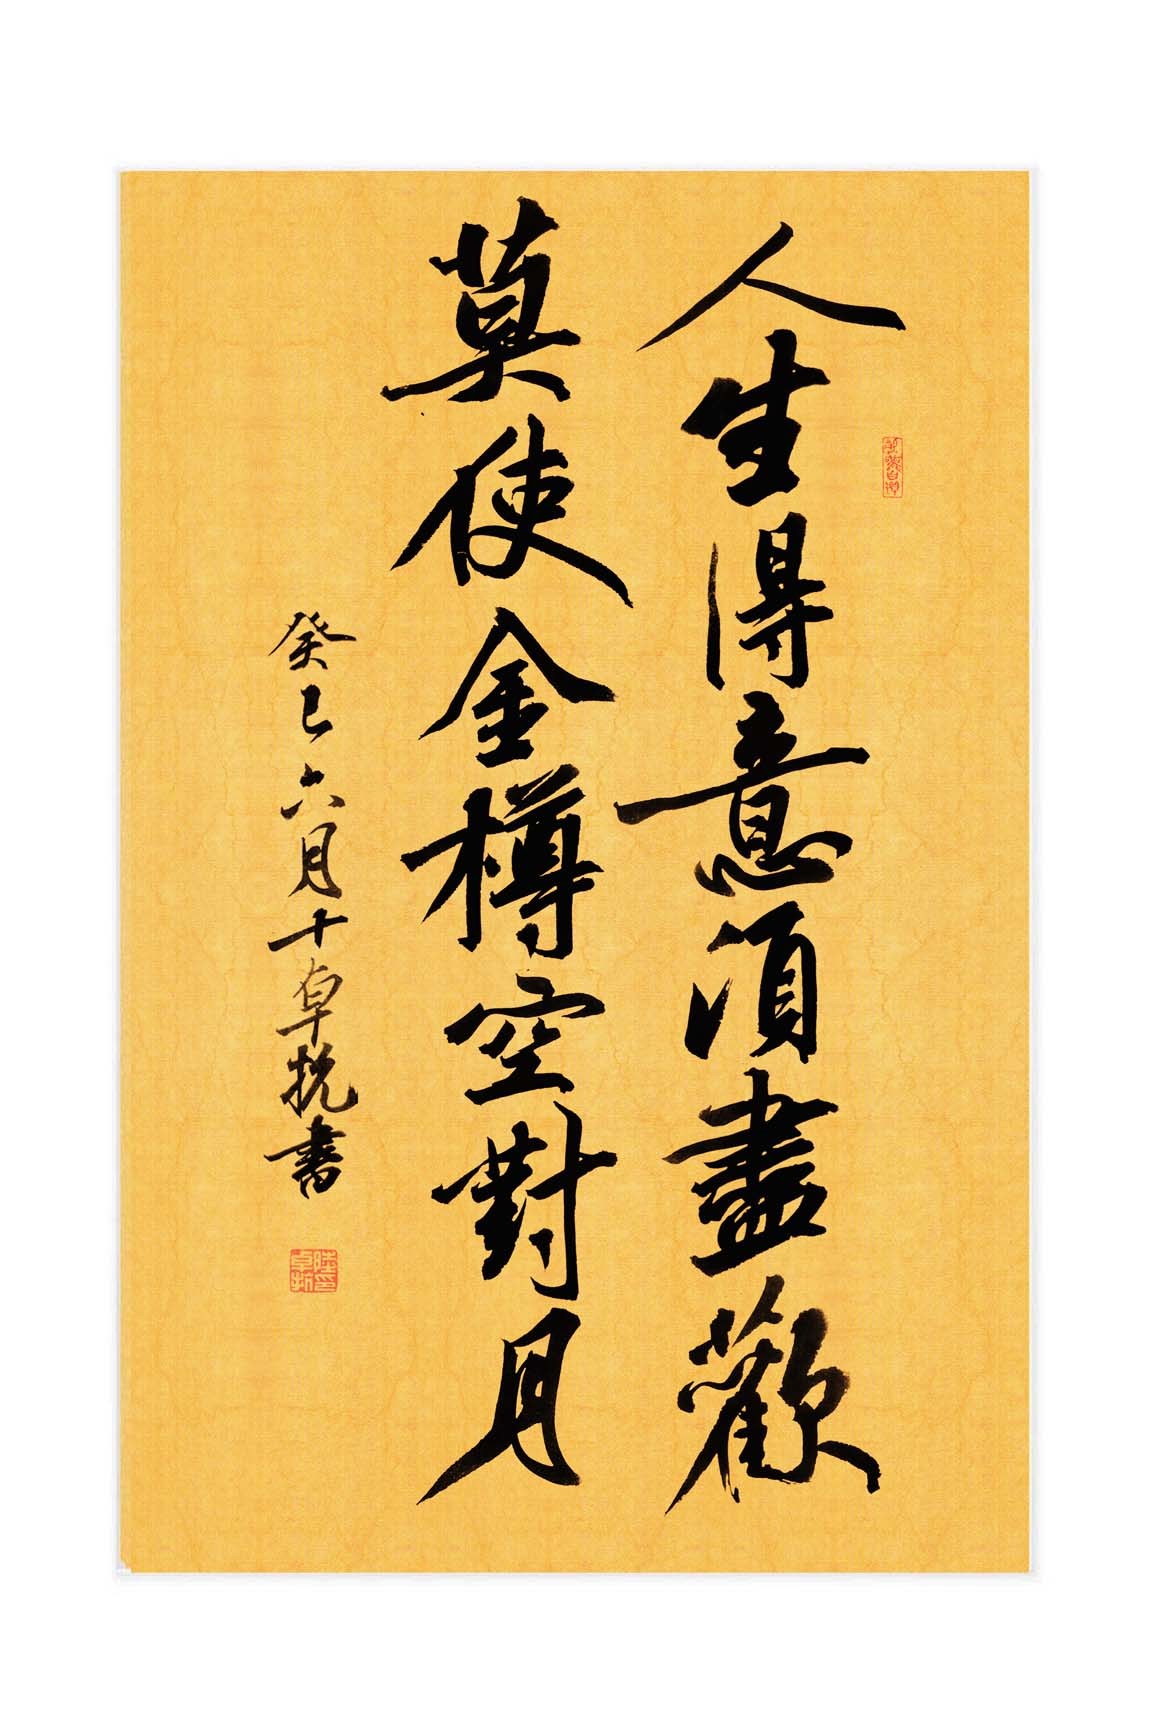 人生得意須盡歡
莫使金樽空對月
癸巳六月十卓挩書